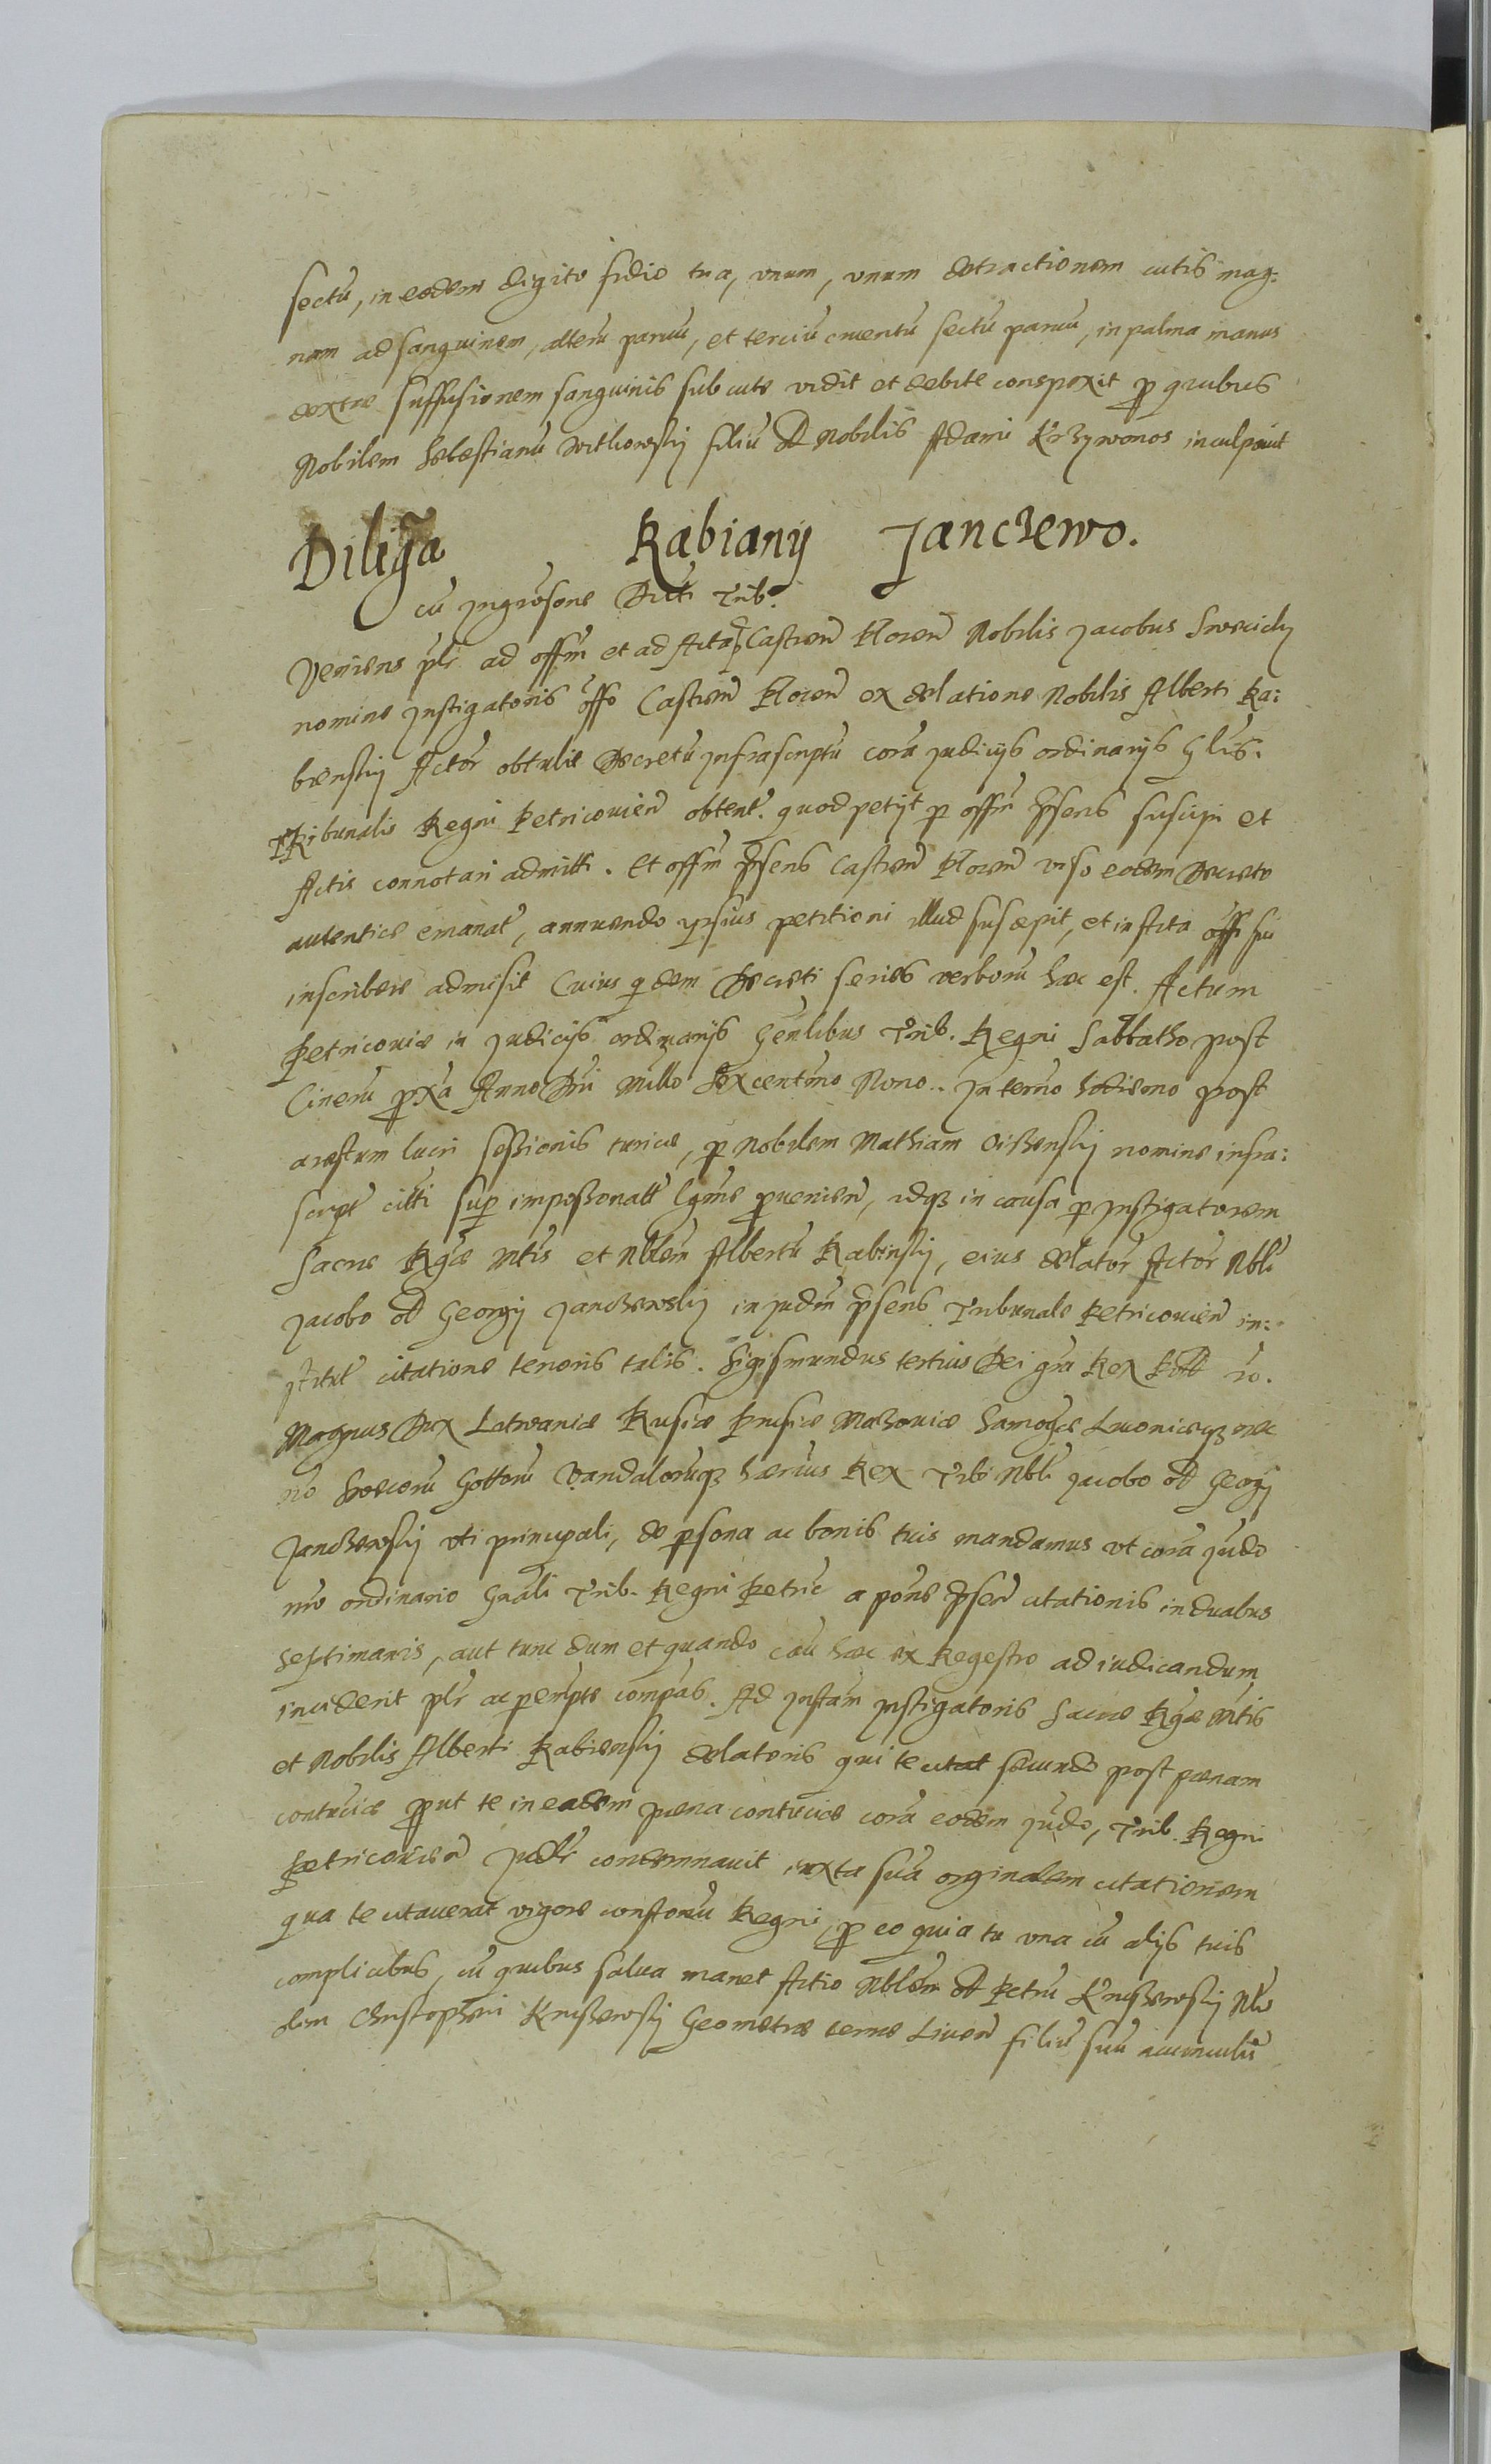 sectũ, in eodem digito sidio tria, unum, unum detractionem cutis mag:
nam ad sanguinem, alterũ paruũ, et terciũ cruentũ sectũ paruũ, in palma manus
dextre suffusionem sanguinis sub cute vidit et debite conspexit pro quibus
Nobilem Sebestianũ Witkowskij filiũ Nobilis Adami Krzywonos inculpauit
Diligã Rabianij Janczewo.
cũ Ingrosõne Dcti Trib.
Veniens plr ad offm et ad Acta Castren Plocen Nobilis Jacobus
nomine Instigatoris offo Castren Plocen ex delatione Nobilis Alberti Ra:
bienskij Actor obtulit Decretũ infrascriptũ corã Judicijs ordinarijs Glibs.
Tribunalis Regni Petricouien obtent. quod petijt p offm pnsens suscipi et
Actis connotari admitti. Et offm pnsens Castren Plocen viso eodem Decreto
autentice emanat, annuendo ipsius petitioni illud suscepit, et in Acta offi sui
inscribere admisit Cuius qdem Decreti series verborũ hæc est. Actum
Petricouiæ in Judicijs ordinarijs Genlibus Trib. Regni Sabbatho post
Cinerũ prxa Anno Dni Millo Sexcentmo Nono. In termo hodierno post
arestum lucri sessionis tunicæ, p Nobilem Mathiam nomine infra:
script citti sup lgme prouenien, idqz in causa p Instigatorem
Sacræ Rgiæ Mtis et Nblem Albertũ Rabinskij, eius delator Actor Nbli
Jacobo Georgij Janczewskij in judm pnsens Tribunale Petricouien in:
stitut citatione tenoris talis. Sigismundus tertius Dei gra Rex Poll
Magnus Dux Litwaniæ Russiæ Prussiæ Mazouiæ Samogiæ Liuoniæqz nec
nõ Sveccorũ Gottorũ Vandalorũqz hærius Rex Tibi Nbli Jacobo Georgij
Janczewskij uti principali, de persona ac bonis tuis mandamus ut corã Judo
nro ordinario Gnali Trib. Regni Petric a pone pnsen citationis in duabus
septimanis, aut tunc dum et quando cau hæc ex Regestro ad iudicandum
inciderit plr ac perempte compas. Ad Instam Instigatoris Sacræ Rgiæ Mtis
et Nobilis Alberti Rabienskij delatoris qui te citat secundo post pænam
contuciæ prout te in eadem pæna contuciæ corã eodem Judo, Trib. Regni
Petricouien Judr condemnauit iuxta suã orginalem citationem
qua te citauerat vigore constonũ Regni, pro eo quia tu una cũ alijs tuis
complicibus, cũ quibus salua manet Actio Nblem Petrũ Kniszewskij Nbi
lem Christopheri Kniszewskij Geometræ terræ Liuen filiũ suũ auunculũ